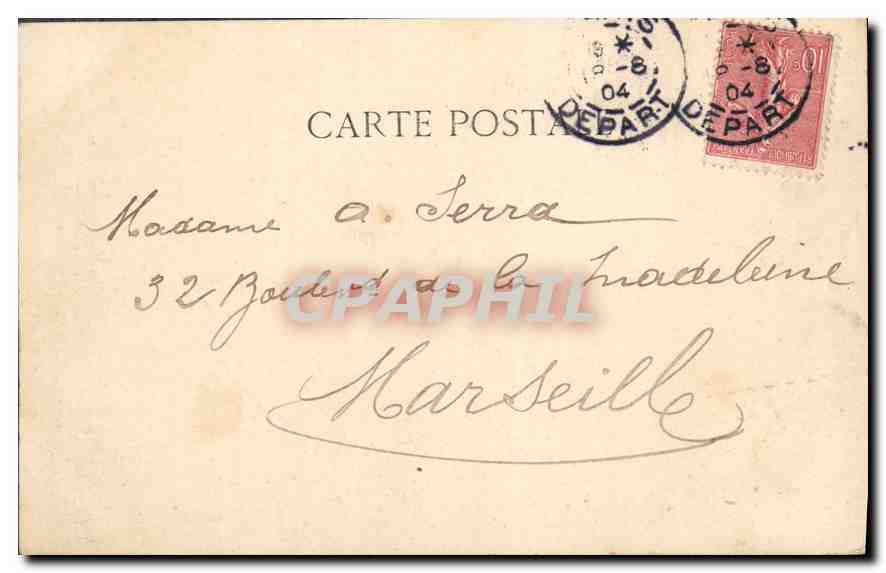 -8
04
DEPART
-8
04
DEPART
10
CARTE POSTALE
Madame A. Serra
32 Boulevd de la Madeleine
CPAPHIL
Marseille